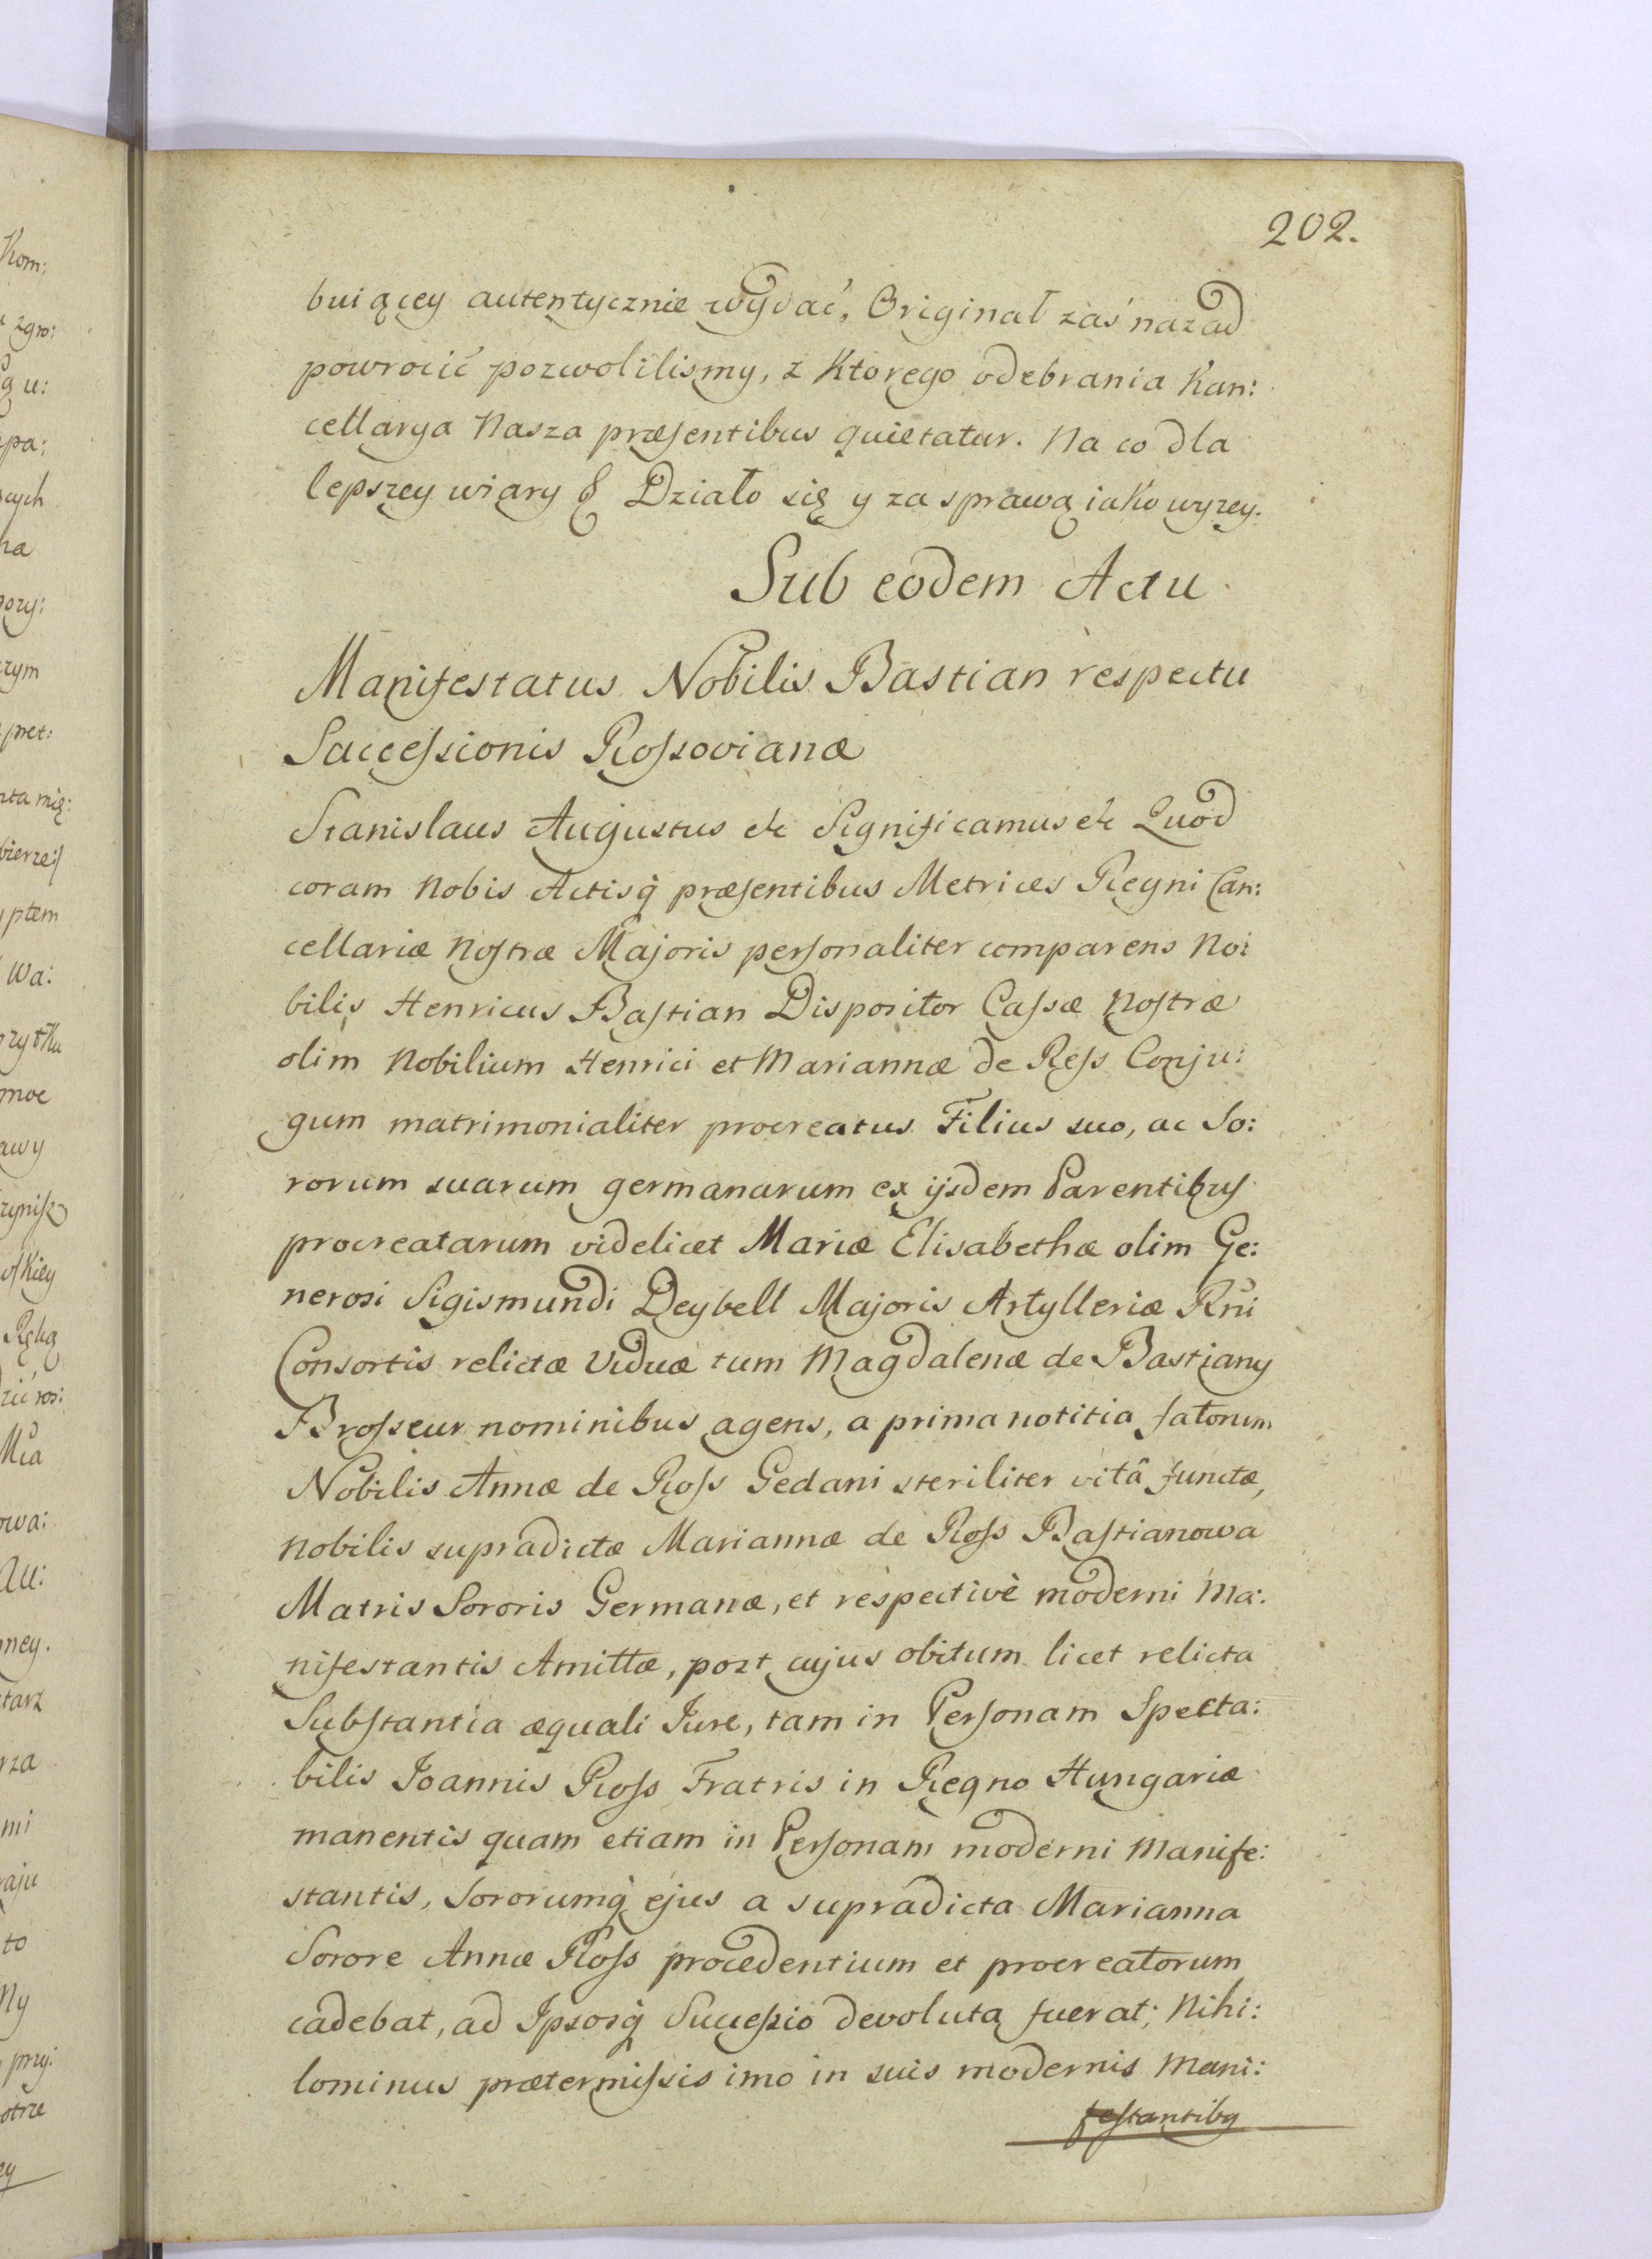 202.
buiącey autentycznie wydać, Originał zaś nazad
powrocić pozwolilismy, z Ktorego odebrania Kan:
cellarya Nasza præsentibus quietatur. Na co dla
lepszey wiary & Działo się y za sprawą iako wyzey.
Sub eodem Actu
Manifestatus Nobilis Bastian respectu
Successionis Rossovianæ
Stanislaus Augustus etc Significamus etc Quod
coram Nobis Actisq̃ præsentibus Metrices Regni Can:
cellariæ Nostræ Majoris personaliter comparens No:
bilis Henricus Bastian Dispositor Cassæ Nostræ
olim Nobilium Henrici et Mariannæ de Ress Conju:
gum matrimonialiter procreatus Filius suo, ac So:
rorum suarum germanarum ex ijsdem Parentibus
procreatarum videlicet Mariæ Elisabethæ olim Ge:
nerosi Sigismundi Deybell Majoris Artylleriæ Rñi
Consortis relictæ Viduæ tum Magdalenæ de Bastiany
Brosseur nominibus agens, a prima notitia fatorum
Nobilis Annæ de Ross Gedani steriliter vitâ functæ,
Nobilis supradictæ Mariannæ de Ross Bastianowa
Matris Sororis Germanæ, et respectivè moderni Ma:
nifestantis Amittæ, post cujus obitum licet relicta
Substantia æquali Jure, tam in Personam Specta:
bilis Joannis Ross Fratris in Regno Hungariæ
manentis quam etiam in Personam moderni Manife:
stantis, Sororumq̃ ejus a supradicta Marianna
Sorore Annæ Ross procedentium et procreatorum
cadebat, ad Ipsosq̃ Successio devoluta fuerat; Nihi:
lominus prætermissis imo in suis modernis Mani:
festantibus